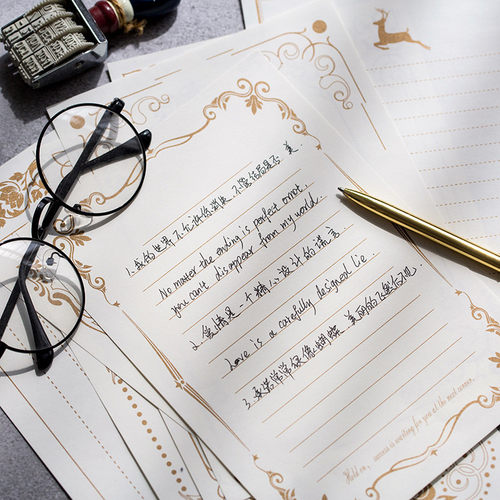 1. 我的世界不允许你消失. 不管结局是否 美.
No matter the ending is perfect or not.
you can't disappear from my world.
2. 爱情是一个精心设计的谎言
Love is a carefully designed lie.
3. 承诺常常很像蝴蝶 美丽的飞
Hold on, success is waiting for you at the next corner.